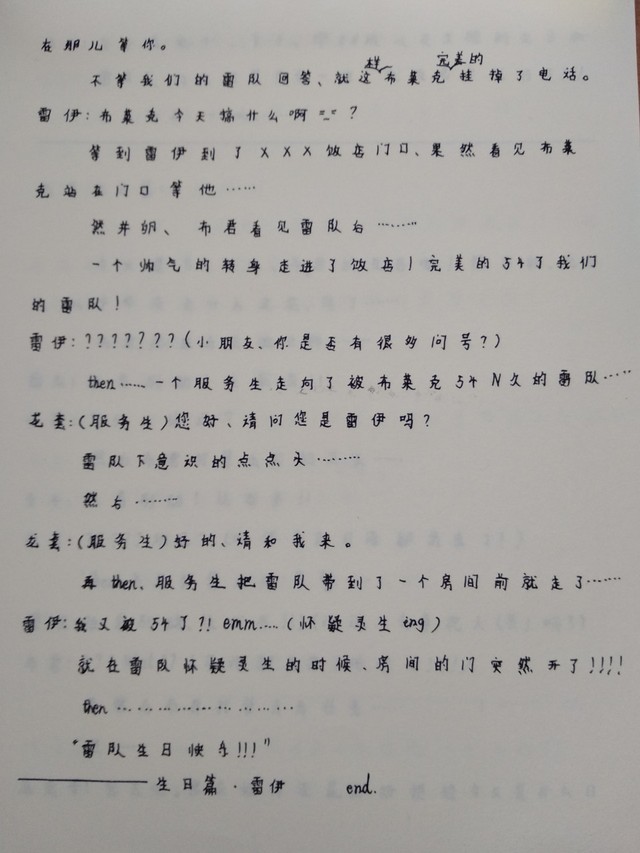 在那儿等你。
不等我们的雷队回答、就这样布莱克完美的挂掉了电话。
雷伊:布莱克今天搞什么啊=_=?
等到雷伊到了XXX饭店门口、果然看见布莱
克站在门口等他……
然并卵、布君看见雷队后………
一个帅气的转身走进了饭店!完美的54了我们
的雷队!
雷伊:???????(小朋友、你是否有很多问号?)
then……一个服务生走向了被布莱克54N次的雷队……
龙套:(服务生)您好、请问您是雷伊吗?
雷队下意识的点点头………
然后………
龙套:(服务生)好的、请和我来。
再then、服务生把雷队带到了一个房间前就走了……
雷伊:我又被54了?!emm……(怀疑灵生ing)
就在雷队怀疑灵生的时候、房间的门突然开了!!!!
then…………………………
"雷队生日快乐!!!"
生日篇·雷伊 end.